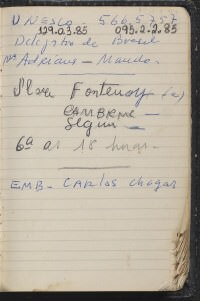 UNESCO - 566.5757
129.03.85 095.2.2.85
Delegation de Bresil
Adriana - Manda.
Place Fontenoy (a)
CAMBRNE -
Segur -
6ª as 18 horas.
EMB - CARLOS chagas